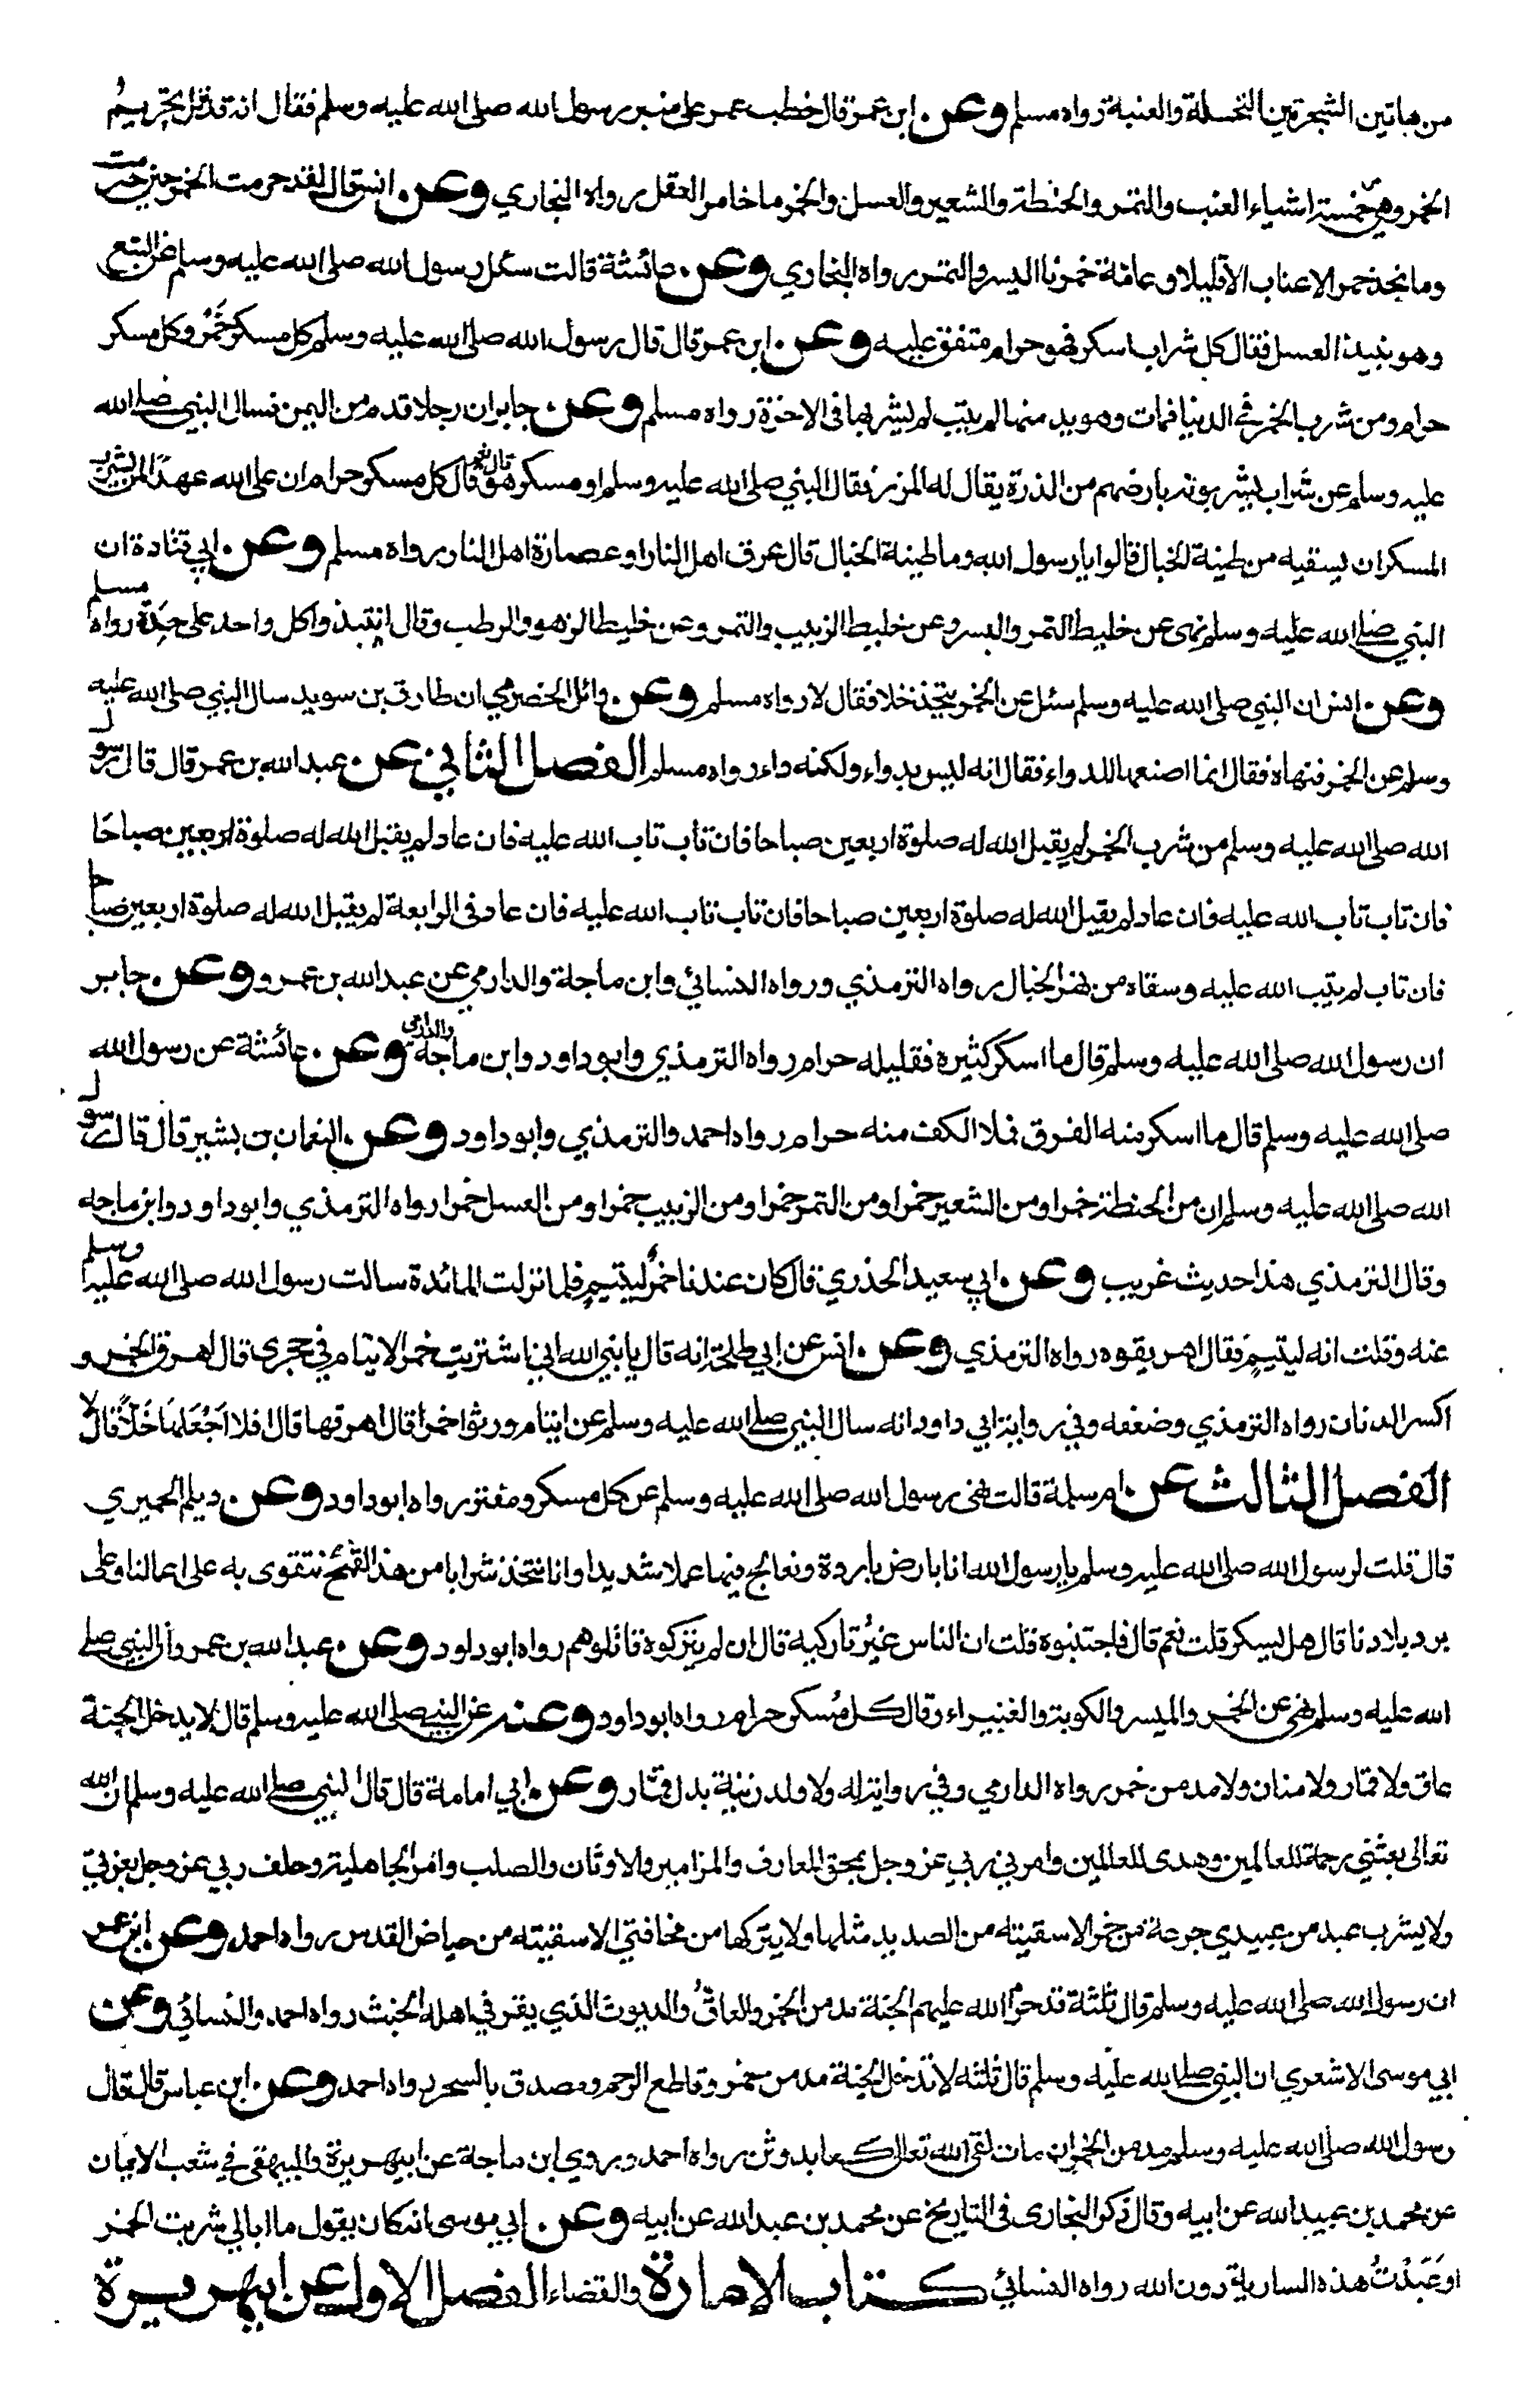 من هاتين الشجرتين النخلة والعنبة رواه مسلم وعن ابن عمر قال خطب عمر على منبر رسول الله صلى الله عليه وسلم فقال انه قد نزل تحريم
الخمر وهي خمسة اشياء العنب والتمر والحنطة والشعير والعسل والخمر ما خامر العقل رواه البخاري وعن انس قال لقد حرمت الخمر حين حرمت
وما نجد خمر الاعناب الا قليلا وعامة خمرنا البسر والتمر رواه البخاري وعن عائشة قالت سئل رسول الله صلى الله عليه وسلم عن البتع
وهو نبيذ العسل فقال كل شراب اسكر فهو حرام متفق عليه وعن ابن عمر قال قال رسول الله صلى الله عليه وسلم كل مسكر خمر وكل مسكر
حرام ومن شرب الخمر في الدنيا فمات وهو يدمنها لم يتب لم يشربها في الاخرة رواه مسلم وعن جابر ان رجلا قدم من اليمن فسال النبي صلى الله
عليه وسلم عن شراب يشربونه بارضهم من الذرة يقال له المزر فقال النبي صلى الله عليه وسلم او مسكر هو قال نعم قال كل مسكر حرام ان على الله عهدا لمن يشرب
المسكر ان يسقيه من طينة الخبال قالوا يا رسول الله وما طينة الخبال قال عرق اهل النار او عصارة اهل النار رواه مسلم وعن ابي قتادة ان
النبي صلى الله عليه وسلم نهى عن خليط التمر والبسر وعن خليط الزبيب والتمر وعن خليط الزهو والرطب وقال انتبذوا كل واحد على حدة رواه مسلم
وعن انس ان النبي صلى الله عليه وسلم سئل عن الخمر يتخذ خلا فقال لا رواه مسلم وعن وائل الحضرمي ان طارق بن سويد سال النبي صلى الله عليه
وسلم عن الخمر فنهاه فقال انما اصنعها للدواء فقال انه ليس بدواء ولكنه داء رواه مسلم الفصل الثاني عن عبد الله بن عمر قال قال رسول
الله صلى الله عليه وسلم من شرب الخمر لم يقبل الله له صلوة اربعين صباحا فان تاب تاب الله عليه فان عاد لم يقبل الله له صلوة اربعين صباحا
فان تاب تاب الله عليه فان عاد لم يقبل الله له صلوة اربعين صباحا فان تاب تاب الله عليه فان عاد في الرابعة لم يقبل الله له صلوة اربعين صباحا
فان تاب لم يتب الله عليه وسقاه من نهر الخبال رواه الترمذي ورواه النسائي وابن ماجة والدارمي عن عبد الله بن عمرو وعن جابر
ان رسول الله صلى الله عليه وسلم قال ما اسكر كثيره فقليله حرام رواه الترمذي وابو داود وابن ماجة والدارمي وعن عائشة عن رسول الله
صلى الله عليه وسلم قال ما اسكر منه الفرق فملا الكف منه حرام رواه احمد والترمذي وابو داود وعن النعمان بن بشير قال قال رسول
الله صلى الله عليه وسلم ان من الحنطة خمرا ومن الشعير خمرا ومن التمر خمرا ومن الزبيب خمرا ومن العسل خمرا رواه الترمذي وابو داود وابن ماجه
وقال الترمذي هذا حديث غريب وعن ابي سعيد الخذري قال كان عندنا خمر ليتيم فلما نزلت المائدة سالت رسول الله صلى الله عليه وسلم
عنه وقلت انه ليتيم فقال اهريقوه رواه الترمذي وعن انس عن ابي طلحة انه قال يا نبي الله اني اشتريت خمر الايتام في حجري قال اهرق الخمر و
اكسر الدنان رواه الترمذي وضعفه وفي رواية ابي داود انه سال النبي صلى الله عليه وسلم عن ايتام ورثوا خمرا قال اهرقها قال افلا اجعلها خلا قال لا
الفصل الثالث عن ام سلمة قالت نهى رسول الله صلى الله عليه وسلم عن كل مسكر ومفتر رواه ابو داود وعن ديلم الحميري
قال قلت لرسول الله صلى الله عليه وسلم يا رسول الله انا بارض باردة ونعالج فيها عملا شديدا وانا نتخذ شرابا من هذا القمح نتقوى به على اعمالنا وعلى
برد بلادنا قال هل يسكر قلت نعم قال فاجتنبوه قلت ان الناس غير تاركيه قال ان لم يتركوه قاتلوهم رواه ابو داود وعن عبد الله بن عمرو ان النبي صلى
الله عليه وسلم نهى عن الخمر والميسر والكوبة والغبيراء وقال كل مسكر حرام رواه ابو داود وعنه عن النبي صلى الله عليه وسلم قال لا يدخل الجنة
عاق ولا قمار ولا منان ولا مدمن خمر رواه الدارمي وفي رواية له ولا ولد زنية بدل قمار وعن ابي امامة قال قال النبي صلى الله عليه وسلم ان الله
تعالى بعثني رحمة للعالمين وهدى للعالمين وامرني ربي عز وجل بمحق المعازف والمزامير والاوثان والصلب وامر الجاهلية وحلف ربي عز وجل بعزتي
ولا يشرب عبد من عبيدي جرعة من خمر الا سقيته من الصديد مثلها ولا يتركها من مخافتي الا سقيته من حياض القدس رواه احمد وعن ابن عمر
ان رسول الله صلى الله عليه وسلم قال ثلثة قد حرم الله عليهم الجنة مدمن الخمر والعاق والديوث الذي يقر في اهله الخبث رواه احمد والنسائي وعن
ابي موسى الاشعري ان النبي صلى الله عليه وسلم قال ثلثة لا تدخل الجنة مدمن خمر وقاطع الرحم ومصدق بالسحر رواه احمد وعن ابن عباس قال قال
رسول الله صلى الله عليه وسلم مدمن الخمر ان مات لقي الله تعالى كعابد وثن رواه احمد وروي ابن ماجة عن ابيهريرة والبيهقي في شعب الايمان
عن محمد بن عبيد الله عن ابيه وقال ذكر البخاري في التاريخ عن محمد بن عبد الله عن ابيه وعن ابي موسى انه كان يقول ما ابالي شربت الخمر
او عبدت هذه السارية دون الله رواه النسائي كتاب الامارة والقضاء الفصل الاول عن ابيهريرة